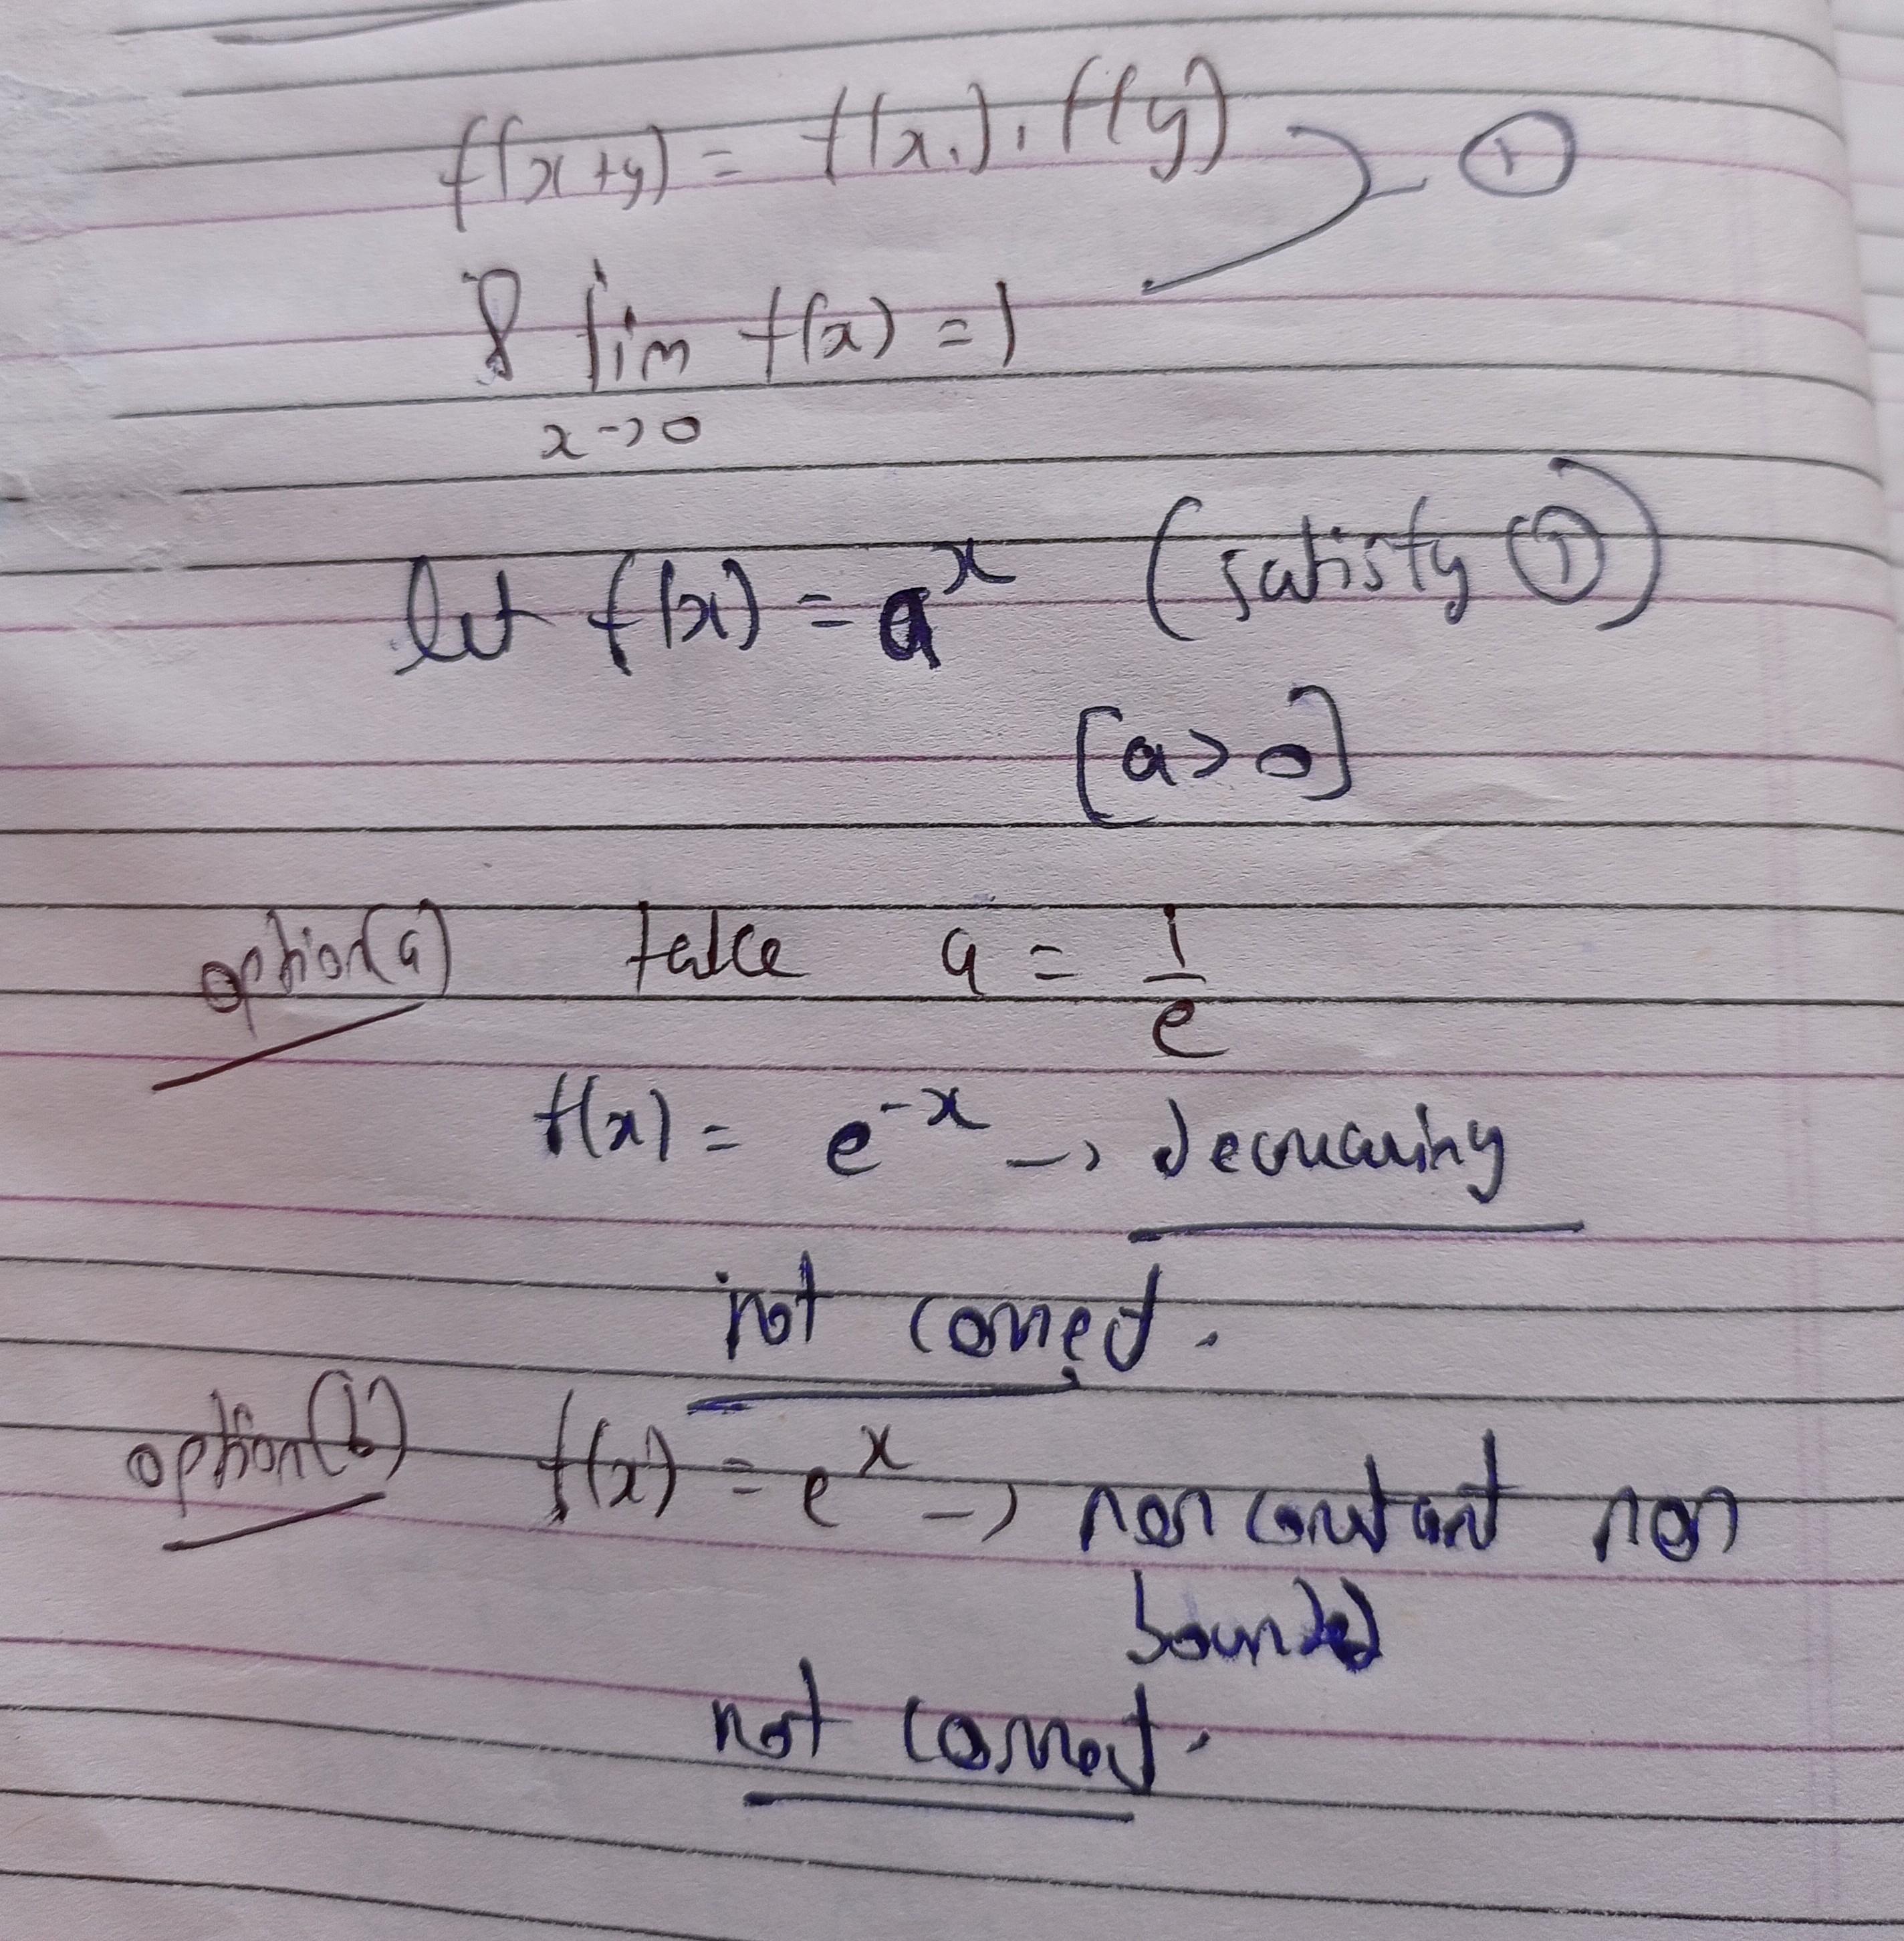 f(x+y) = f(x).f(y)
①
& lim f(x) = 1
x→0
let f(x) = a^x (satisfy ①)
[a>0]
option(a) take a = 1/e
f(x) = e^-x → decreasing
not correct.
option(b) f(x) = e^x → non constant non
bounded
not correct.